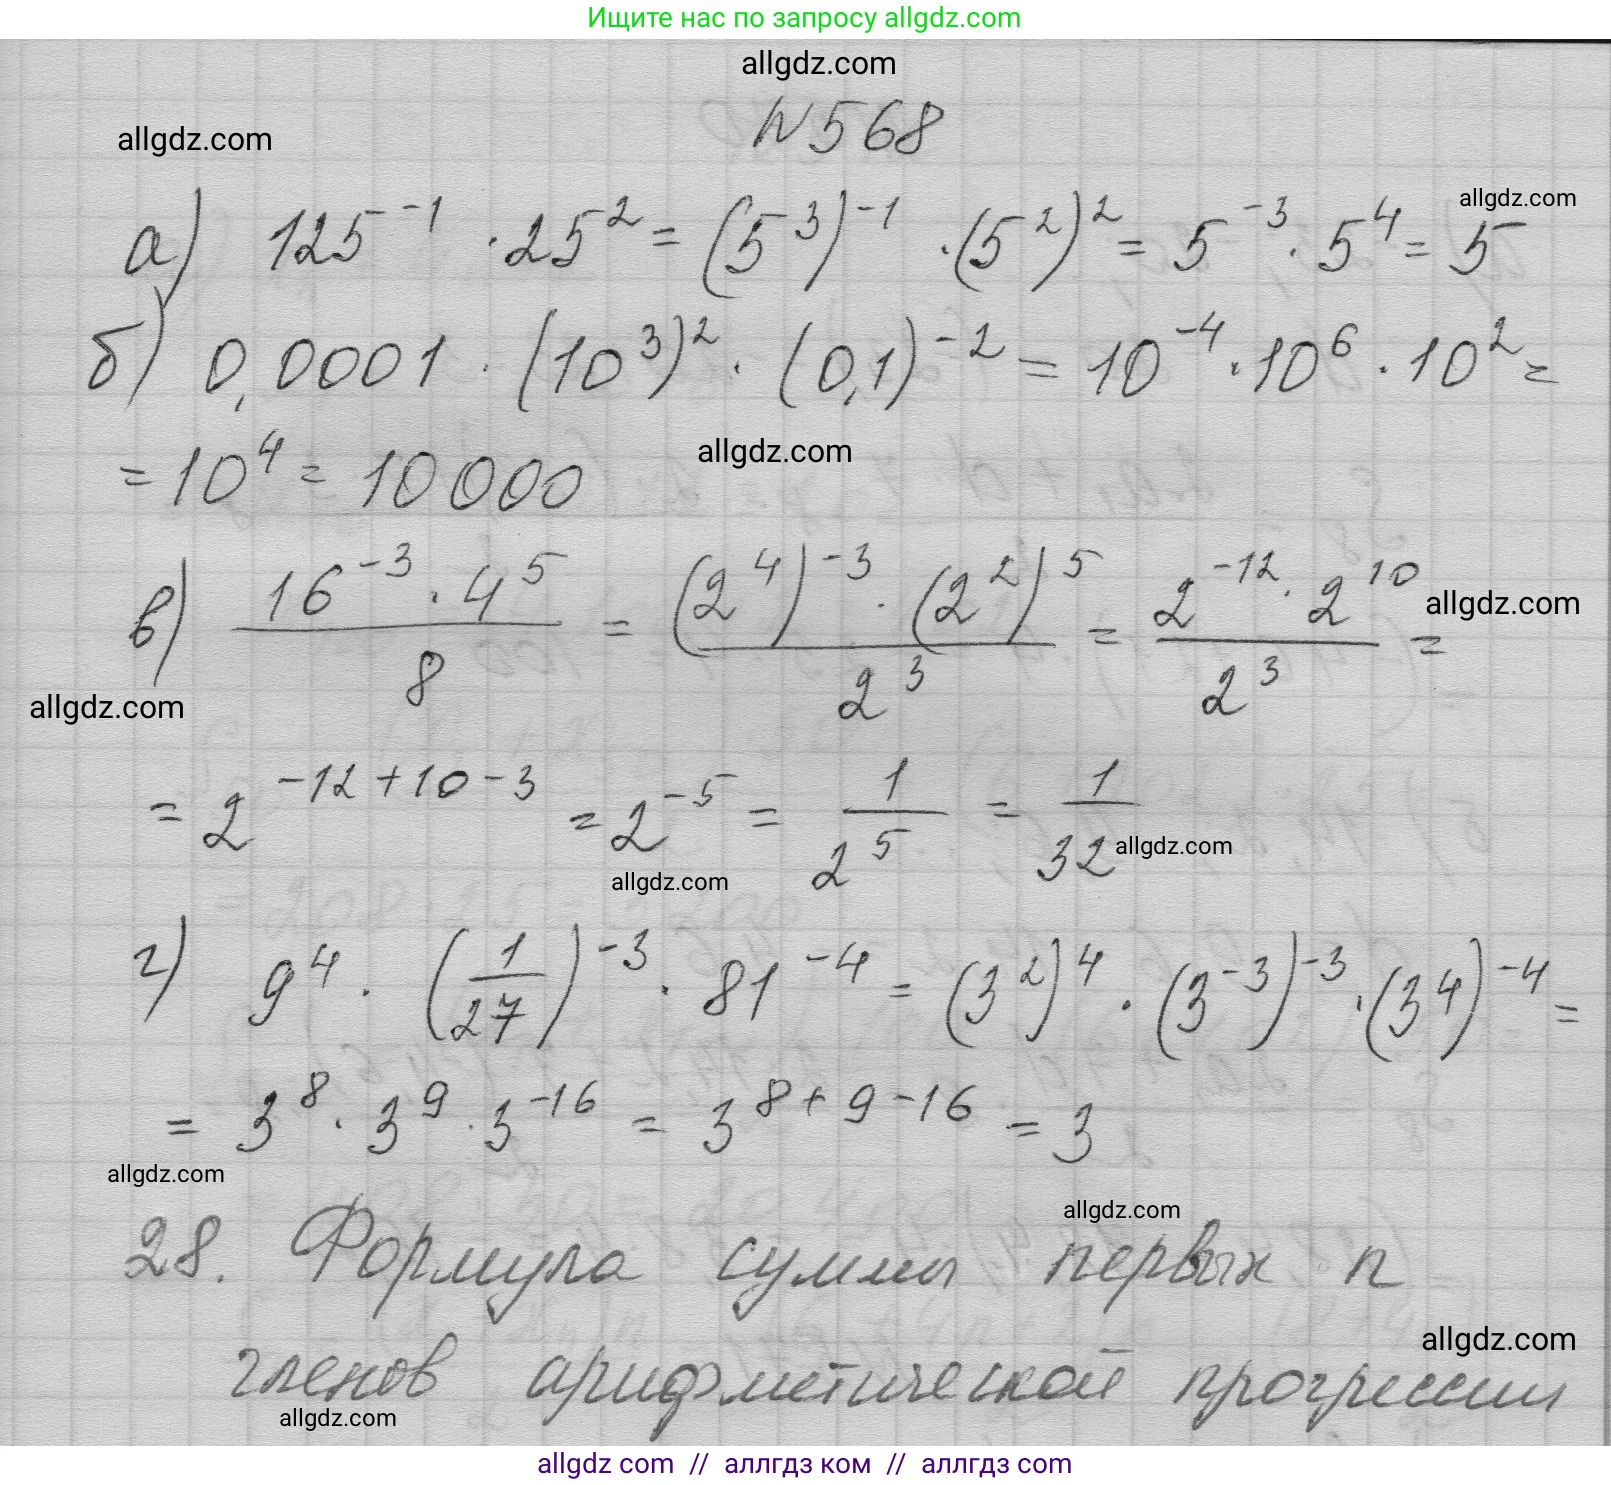 Ищите нас по запросу allgdz.com
allgdz.com
N 568
allgdz.com
allgdz.com
а) 125⁻¹ · 25² = (5³)⁻¹ · (5²)² = 5⁻³ · 5⁴ = 5
б) 0,0001 · (10³)² · (0,1)⁻² = 10⁻⁴ · 10⁶ · 10² =
= 10⁴ = 10 000
allgdz.com
в) (16⁻³ · 4⁵)/8 = ((2⁴)⁻³ · (2²)⁵)/2³ = (2⁻¹² · 2¹⁰)/2³ =
allgdz.com
allgdz.com
= 2⁻¹²⁺¹⁰⁻³ = 2⁻⁵ = 1/2⁵ = 1/32
allgdz.com
allgdz.com
г) 9⁴ · (1/27)⁻³ · 81⁻⁴ = (3²)⁴ · (3⁻³)⁻³ · (3⁴)⁻⁴ =
= 3⁸ · 3⁹ · 3⁻¹⁶ = 3⁸⁺⁹⁻¹⁶ = 3
allgdz.com
allgdz.com
28. Формула суммы первых n
allgdz.com
членов арифметической прогрессии
allgdz.com
allgdz com // аллгдз ком // аллгдз com